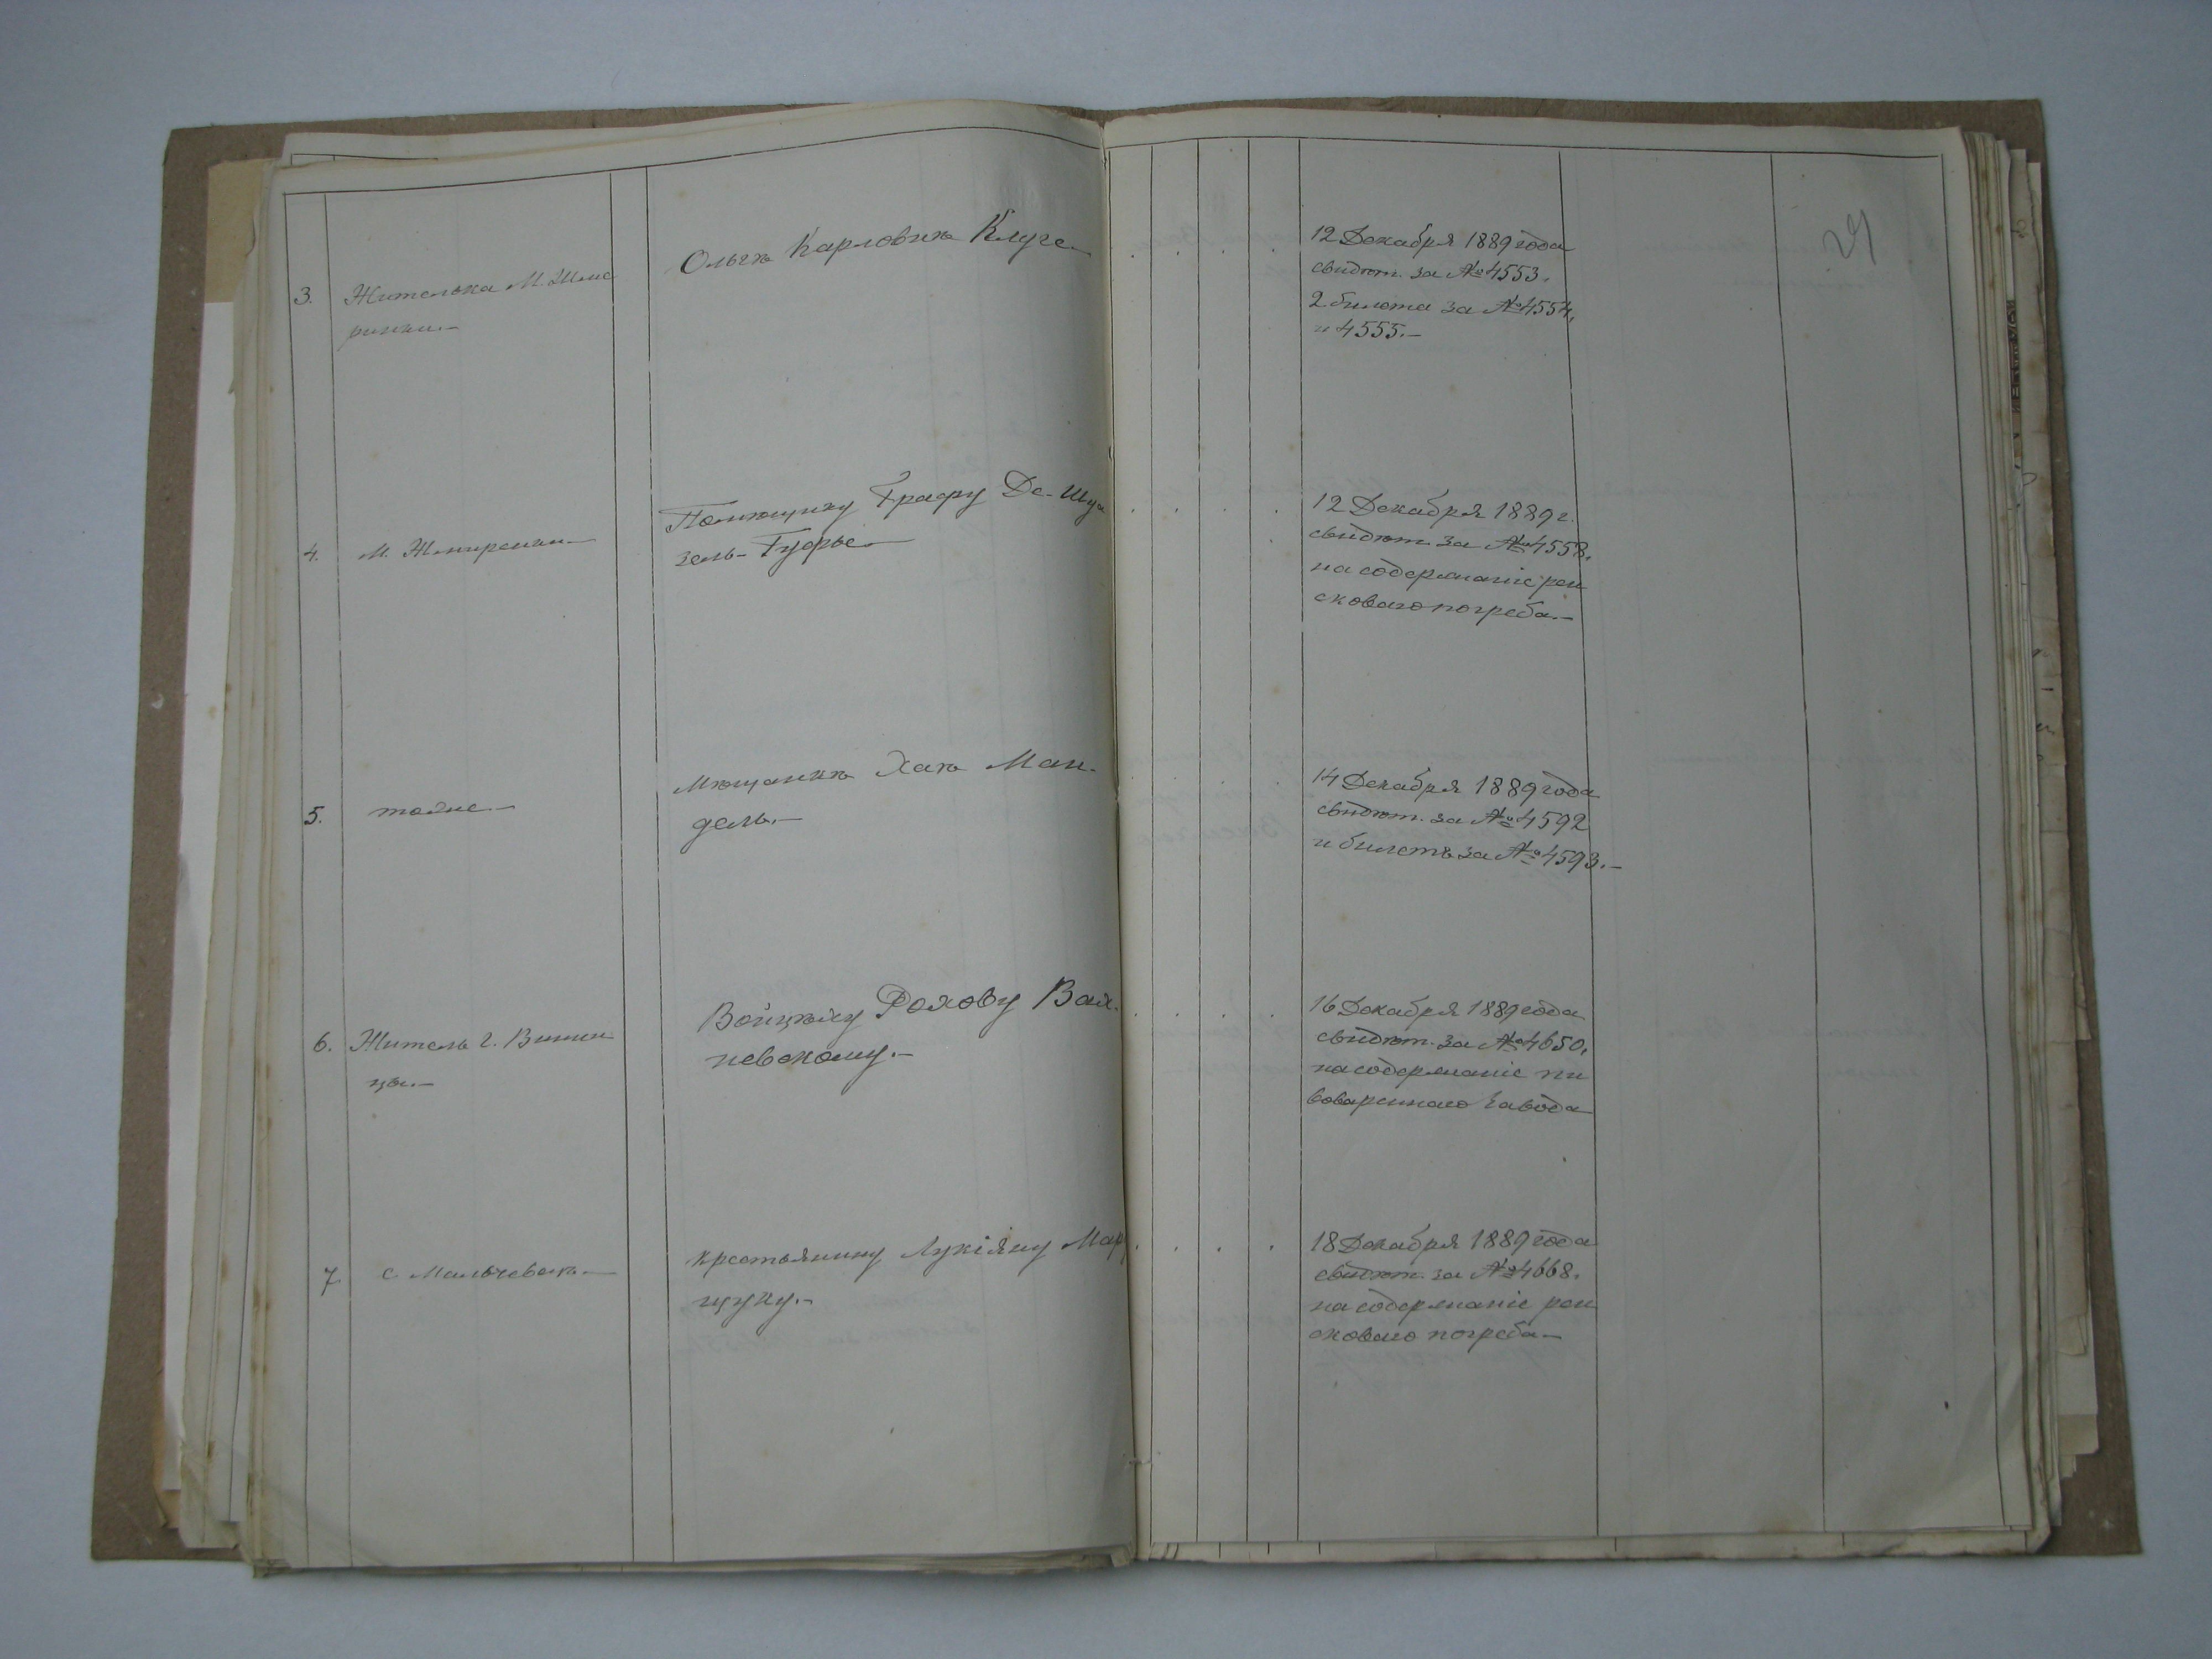 29
3. Жителька М. Жме
ринки.—
Ольгѣ Карловнѣ Клуге
12 Декабря 1889 года
свидѣт. за № 4553.
2 билета за № 4554.
и 4555.—
4. М. Жмеренки—
Помѣщику Графу Де-Шуа
зель-Гуфье—
12 Декабря 1889 г.
свидѣт. за № 4558.
на содержаніе рен
сковаго погреба.—
5. тоже.—
Мѣщанкѣ Хаѣ Ман-
дель.—
14 Декабря 1889 года
свидѣт. за № 4592
и билетъ за № 4593.—
6. Житель г. Винни
цы.—
Войцѣху
невскому.—
16 Декабря 1889 года
свидѣт. за № 4650.
на содержаніе пи
вовареннаго завода
7. с Мальчевокъ—
крестьянину Лукіяну Мар
цуку.—
18 Декабря 1889 года
свидѣт. за № 4668.
на содержаніе рен
сковаго погреба—